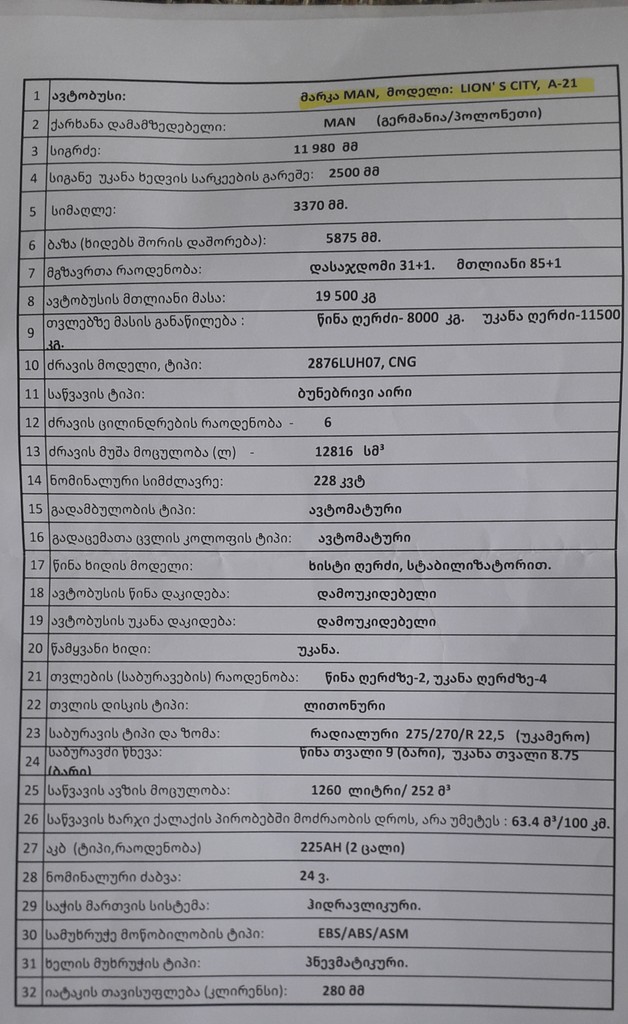 1 ავტობუსი: მარკა MAN, მოდელი: LION' S CITY, A-21
2 ქარხანა დამამზედებელი: MAN (გერმანია/პოლონეთი)
3 სიგრძე: 11 980 მმ
4 სიგანე უკანა ხედვის სარკეების გარეშე: 2500 მმ
5 სიმაღლე: 3370 მმ.
6 ბაზა (ხიდებს შორის დაშორება): 5875 მმ.
7 მგზავრთა რაოდენობა: დასაჯდომი 31+1. მთლიანი 85+1
8 ავტობუსის მთლიანი მასა: 19 500 კგ
9 თვლებზე მასის განაწილება : წინა ღერძი- 8000 კგ. უკანა ღერძი-11500
კგ.
10 ძრავის მოდელი, ტიპი: 2876LUH07, CNG
11 საწვავის ტიპი: ბუნებრივი აირი
12 ძრავის ცილინდრების რაოდენობა - 6
13 ძრავის მუშა მოცულობა (ლ) - 12816 სმ³
14 ნომინალური სიმძლავრე: 228 კვტ
15 გადამბულობის ტიპი: ავტომატური
16 გადაცემათა ცვლის კოლოფის ტიპი: ავტომატური
17 წინა ხიდის მოდელი: ხისტი ღერძი, სტაბილიზატორით.
18 ავტობუსის წინა დაკიდება: დამოუკიდებელი
19 ავტობუსის უკანა დაკიდება: დამოუკიდებელი
20 წამყვანი ხიდი: უკანა.
21 თვლების (საბურავების) რაოდენობა: წინა ღერძზე-2, უკანა ღერძზე-4
22 თვლის დისკის ტიპი: ლითონური
23 საბურავის ტიპი და ზომა: რადიალური 275/270/R 22,5 (უკამერო)
24 საბურავში წნევა: წინა თვალი 9 (ბარი), უკანა თვალი 8.75
(ბარი)
25 საწვავის ავზის მოცულობა: 1260 ლიტრი/ 252 მ³
26 საწვავის ხარჯი ქალაქის პირობებში მოძრაობის დროს, არა უმეტეს : 63.4 მ³/100 კმ.
27 აკბ (ტიპი,რაოდენობა) 225AH (2 ცალი)
28 ნომინალური ძაბვა: 24 ვ.
29 საჭის მართვის სისტემა: ჰიდრავლიკური.
30 სამუხრუჭე მოწობილობის ტიპი: EBS/ABS/ASM
31 ხელის მუხრუჭის ტიპი: პნევმატიკური.
32 იატაკის თავისუფლება (კლირენსი): 280 მმ